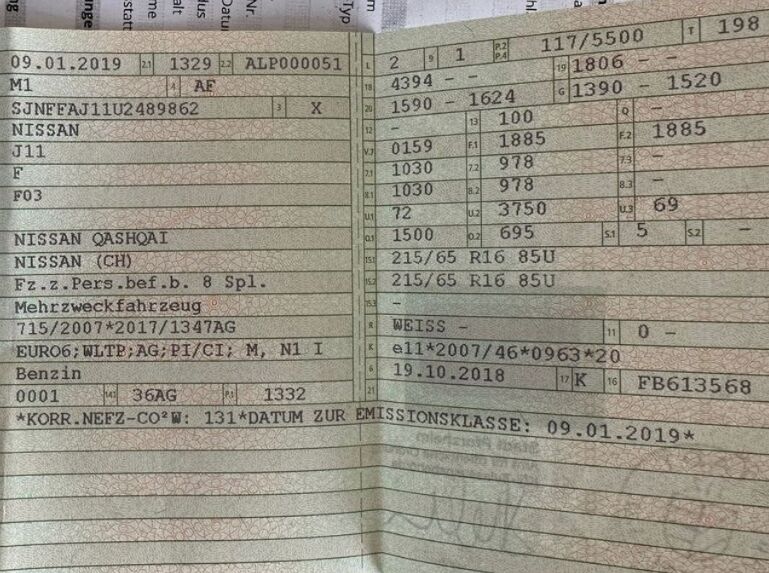 Nr.
Typ
09.01.2019 2.1 1329 2.2 ALP000051
M1 4 AF
SJNFFAJ11U2489862 3 X
NISSAN
J11
F
F03
NISSAN QASHQAI
NISSAN (CH)
Fz.z.Pers.bef.b. 8 Spl.
Mehrzweckfahrzeug
715/2007*2017/1347AG
EURO6;WLTP;AG;PI/CI; M, N1 I
Benzin
0001 14.1 36AG P.1 1332
L 2 9 1 P.2 P.4 117/5500 T 198
18 4394 - - 19 1806 - -
20 1590 - 1624 G 1390 - 1520
12 - 13 100 Q -
V.7 0159 F.1 1885 F.2 1885
7.1 1030 7.2 978 7.3 -
8.1 1030 8.2 978 8.3 -
U.1 72 U.2 3750 U.3 69
O.1 1500 O.2 695 S.1 5 S.2 -
15.1 215/65 R16 85U
15.2 215/65 R16 85U
15.3 -
R WEISS - 11 0 -
K e11*2007/46*0963*20
6 19.10.2018 17 K 16 FB613568
21
*KORR.NEFZ-CO²W: 131*DATUM ZUR EMISSIONSKLASSE: 09.01.2019*